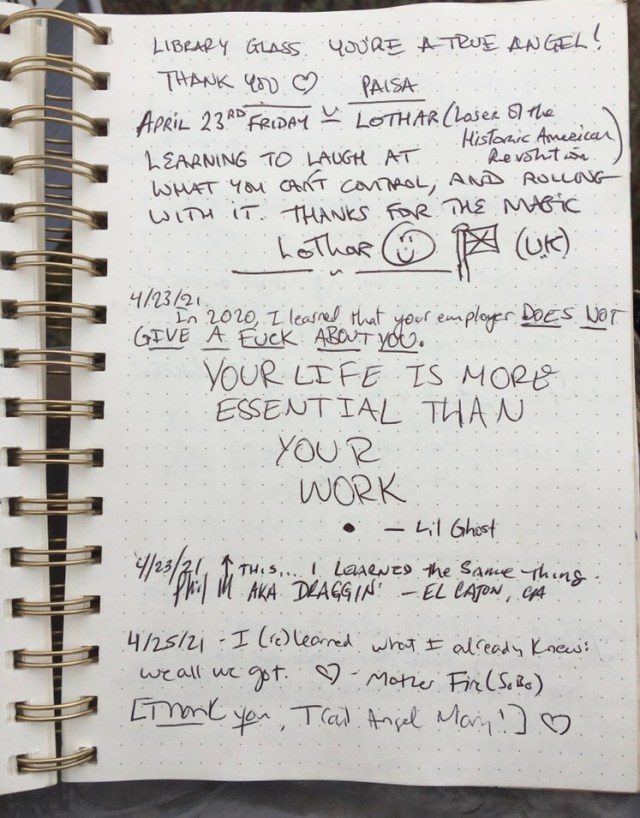 LIBRARY GLASS. YOU'RE A TRUE ANGEL!
THANK YOU ♡ PAISA
APRIL 23RD FRIDAY – LOTHAR (Loser of the
Historic American
Revolution)
LEARNING TO LAUGH AT
WHAT YOU CAN'T CONTROL, AND ROLLING
WITH IT. THANKS FOR THE MAGIC
LOTHAR (UK)
4/23/21
In 2020, I learned that your employer DOES NOT
GIVE A FUCK ABOUT YOU.
YOUR LIFE IS MORE
ESSENTIAL THAN
YOUR
WORK
• – Lil Ghost
4/23/21 ↑ THIS... I LEARNED the Same Thing.
Phil M AKA DRAGGIN' – EL CAJON, CA
4/25/21 - I (re)learned what I already knew:
we all we got. ♡ - Mother Fire (SoBo)
[Thank you, Trail Angel Mary!] ♡